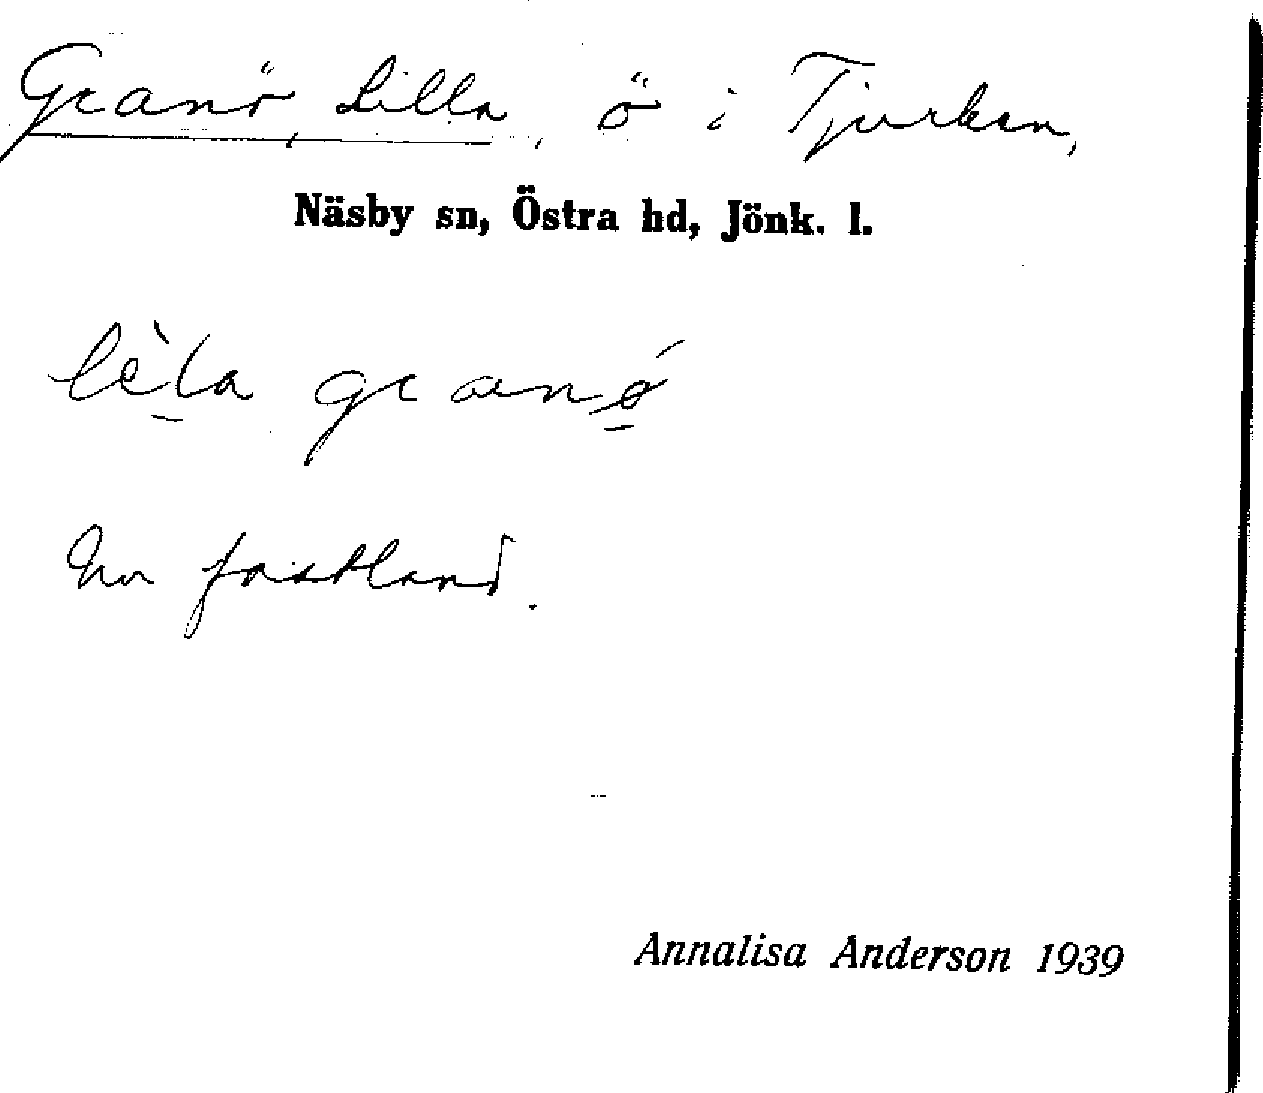 Granö, Lilla, ö i Tjurken,
Näsby sn, Östra hd, Jönk. l.
lèla granö́
Nu fastland.
Annalisa Anderson 1939